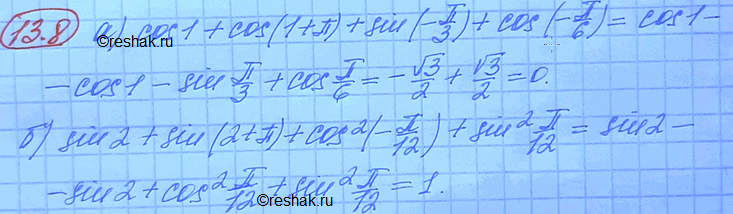 13.8 а) cos1 + cos(1+π) + sin(-π/3) + cos(-π/6) = cos1 -
©reshak.ru
- cos1 - sin π/3 + cos π/6 = -√3/2 + √3/2 = 0.
б) sin2 + sin(2+π) + cos²(-π/12) + sin² π/12 = sin2 -
- sin2 + cos² π/12 + sin² π/12 = 1.
©reshak.ru